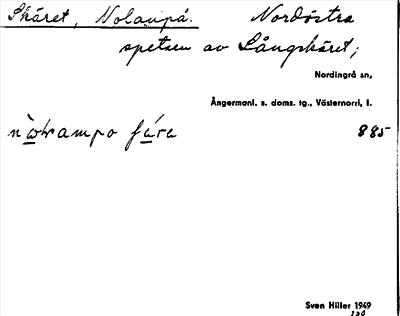 Skäret, Nolanpå. Nordöstra
spetsen av Långskäret;
Nordingrå sn,
Ångermanl. s. doms. tg., Västernorrl. l.
885
Sven Hiller 1949